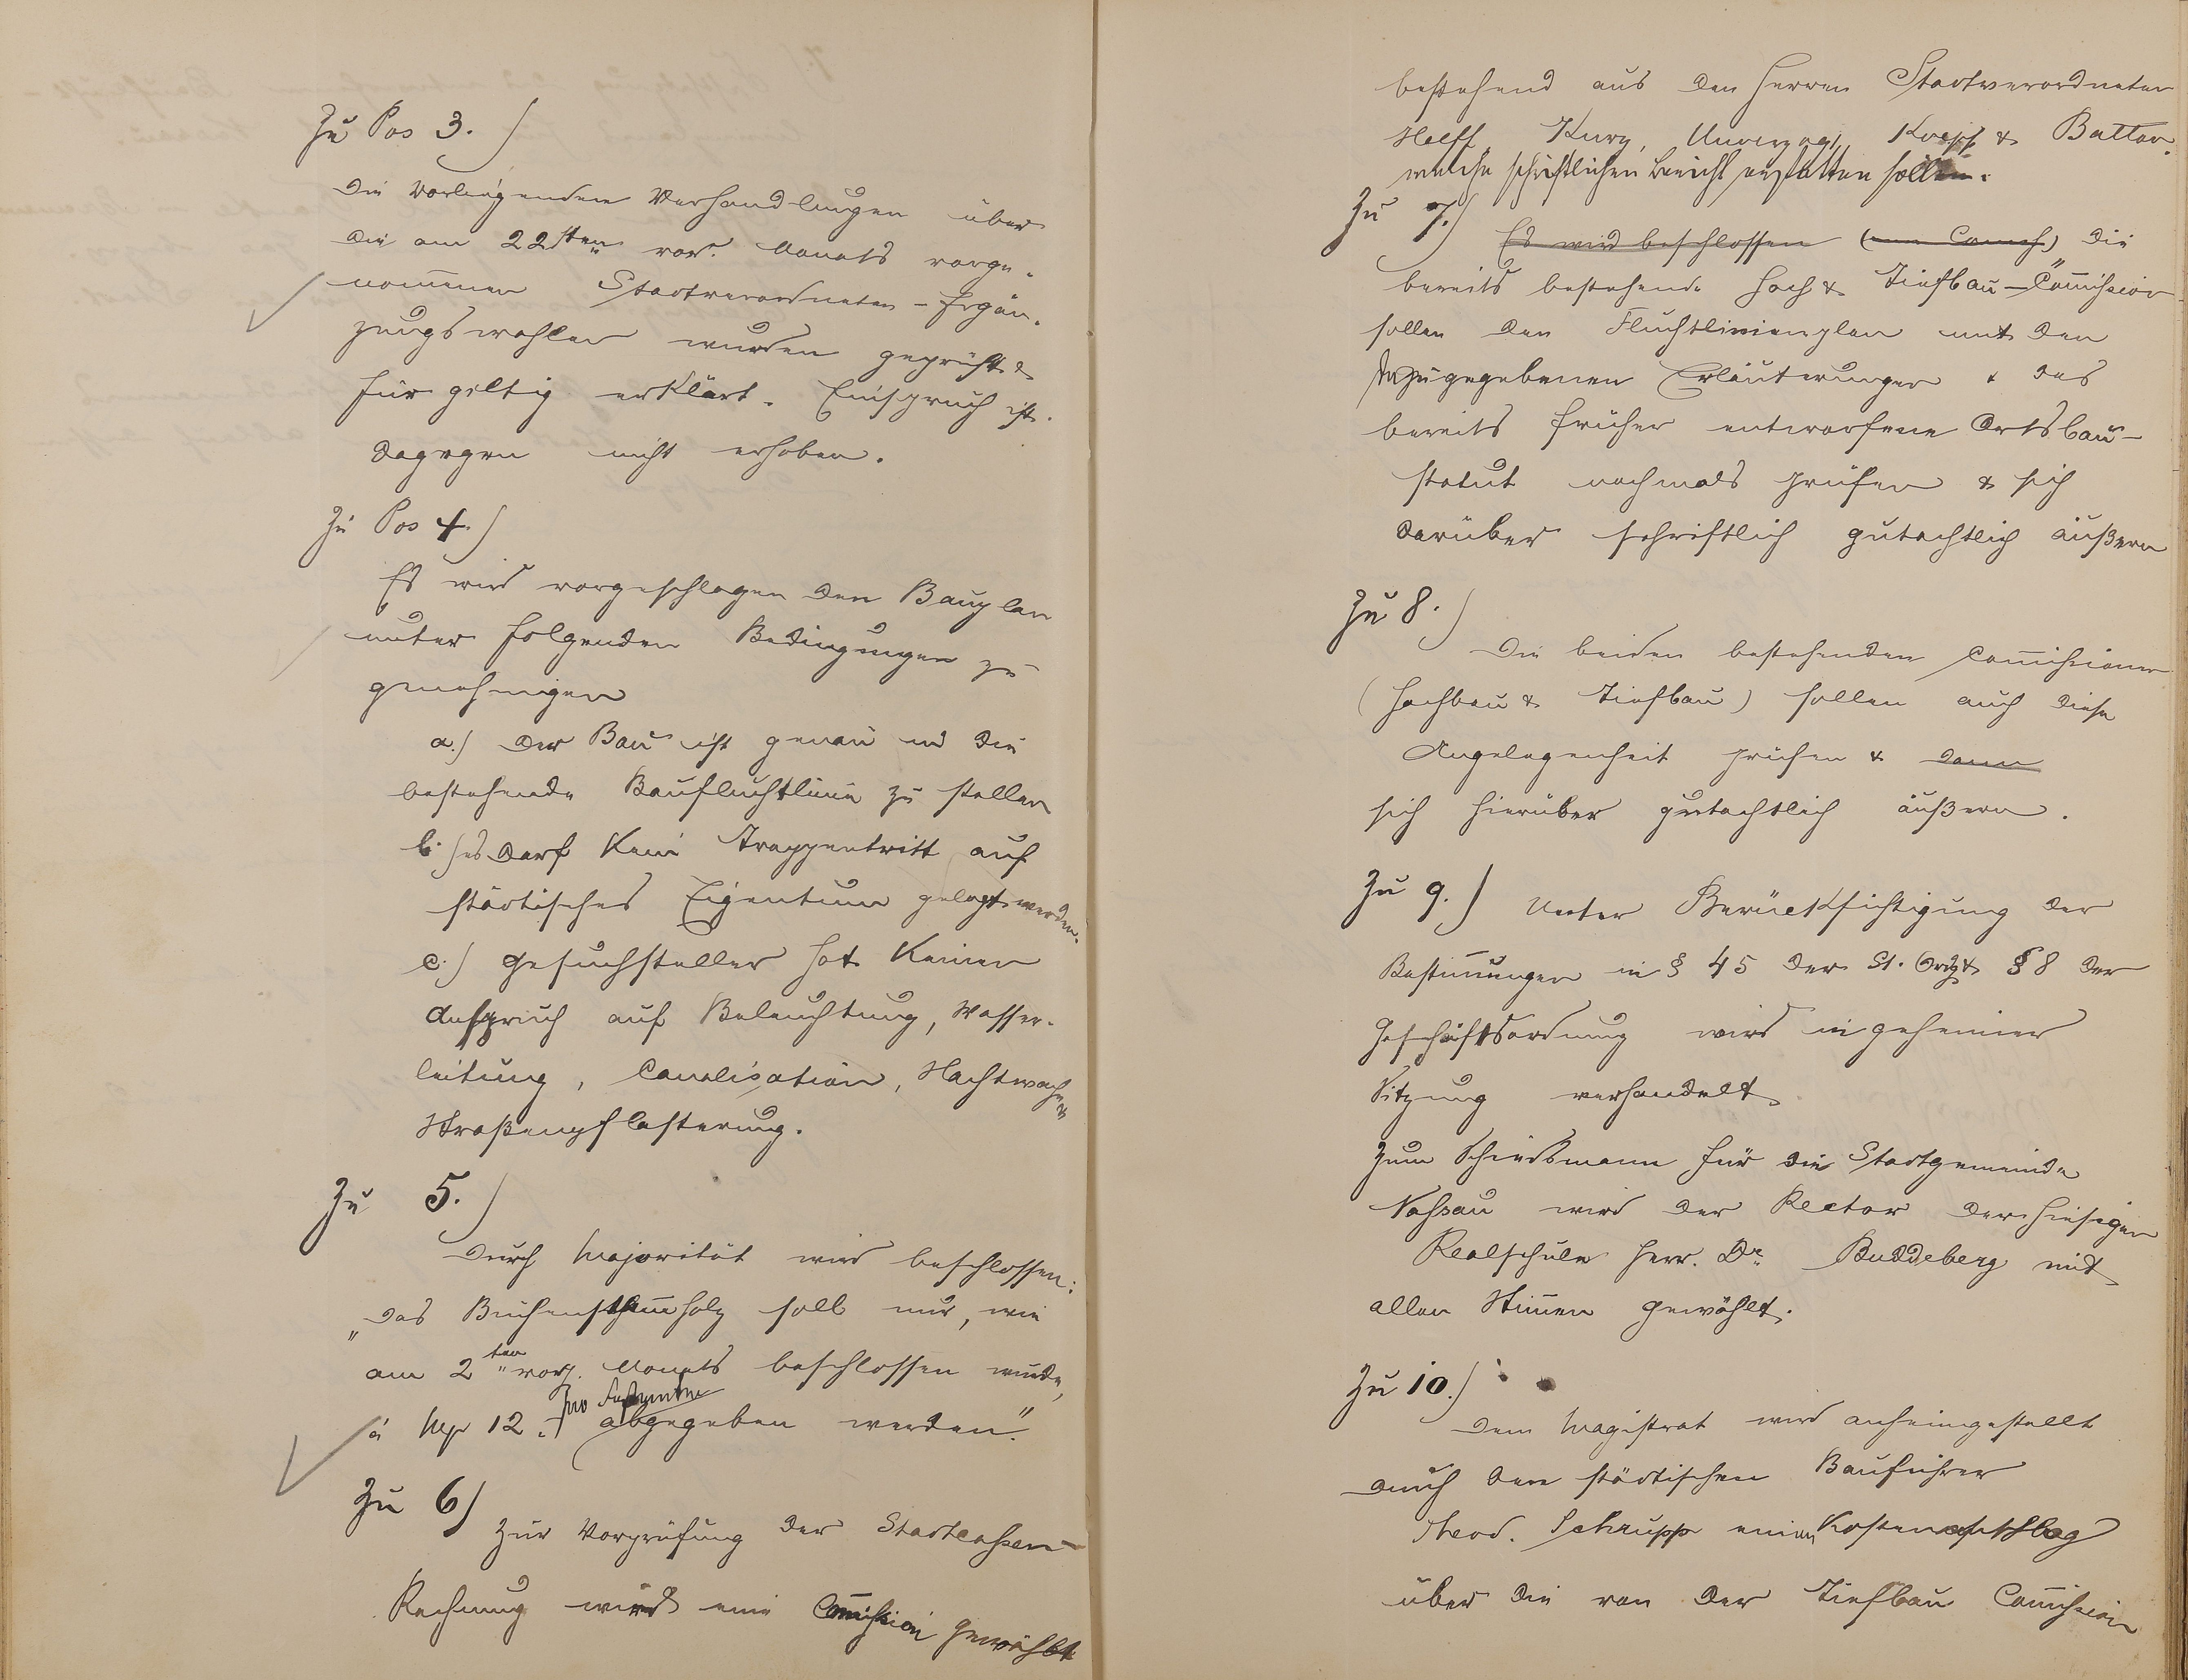 Zu Pos 3.)
Die vorliegenden Verhandlungen über
die am 22sten vor. Monats vorge-
nom̅enen Stadtverordneten-Ergän-
zungswahlen wurden geprüft &
für giltig erklärt. Einspruch ist
dagegen nicht erhoben.
Zu Pos 4.)
Es wird vorgeschlagen den Bauplan
unter folgenden Bedingungen zu
genehmigen
a.) Der Bau ist genau in die
bestehende Baufluchtlinie zu stellen
b.) es darf kein Treppentritt auf
städtisches Eigentum gelegt werden.
c.) Gesuchsteller hat keinen
Anspruch auf Beleuchtung, Wasser-
leitung, Canalisation, Nachtwache &
Straßenpflasterung.
Zu 5.)
Durch Majorität wird beschlossen:
„Das Buchenstam̅holz soll nur, wie
am 2ten vorg. Monats beschlossen wurde,
pro Festmeter
á M 12.- abgegeben werden."
Zu 6)
Zur Vorprüfung der Stadtcassen-
Rechnung wird eine Com̅ission gewählt
bestehend aus den Herren Stadtverordneten
Kurz, Unverzagt, & Batton,
welche schriftlichen Bericht erstatten sollen.
Zu 7.) Es wird beschlossen die
bereits bestehende Hoch & Tiefbau-Com̅ission
sollen den Fluchtlinienplan mit den
dazugegebenen Erläuterungen & das
bereits früher entworfene Ortsbau-
statut nochmals prüfen & sich
darüber schriftlich gutachtlich äußern
Zu 8.)
Die beiden bestehenden Com̅issionen
(Hochbau & Tiefbau) sollen auch diese
Angelegenheit prüfen & dann
sich hierüber gutachtlich äußern.
Zu 9.) Unter Berücksichtigung der
Bestim̅ungen in § 45 der St. Ordg & § 8 der
Geschäftsordnung wird in geheimer
Sitzung verhandelt.
Zum Schiedsmann für die Stadtgemeinde
Nassau wird der Rector der hiesigen
Realschule Herr Dr. Buddeberg mit
allen Stim̅en gewählt.
Zu 10.)
Dem Magistrat wird anheimgestellt
durch den städtischen Bauführer
Theod. Schrupp einen Kostenanschlag
über die von der Tiefbau Com̅ission